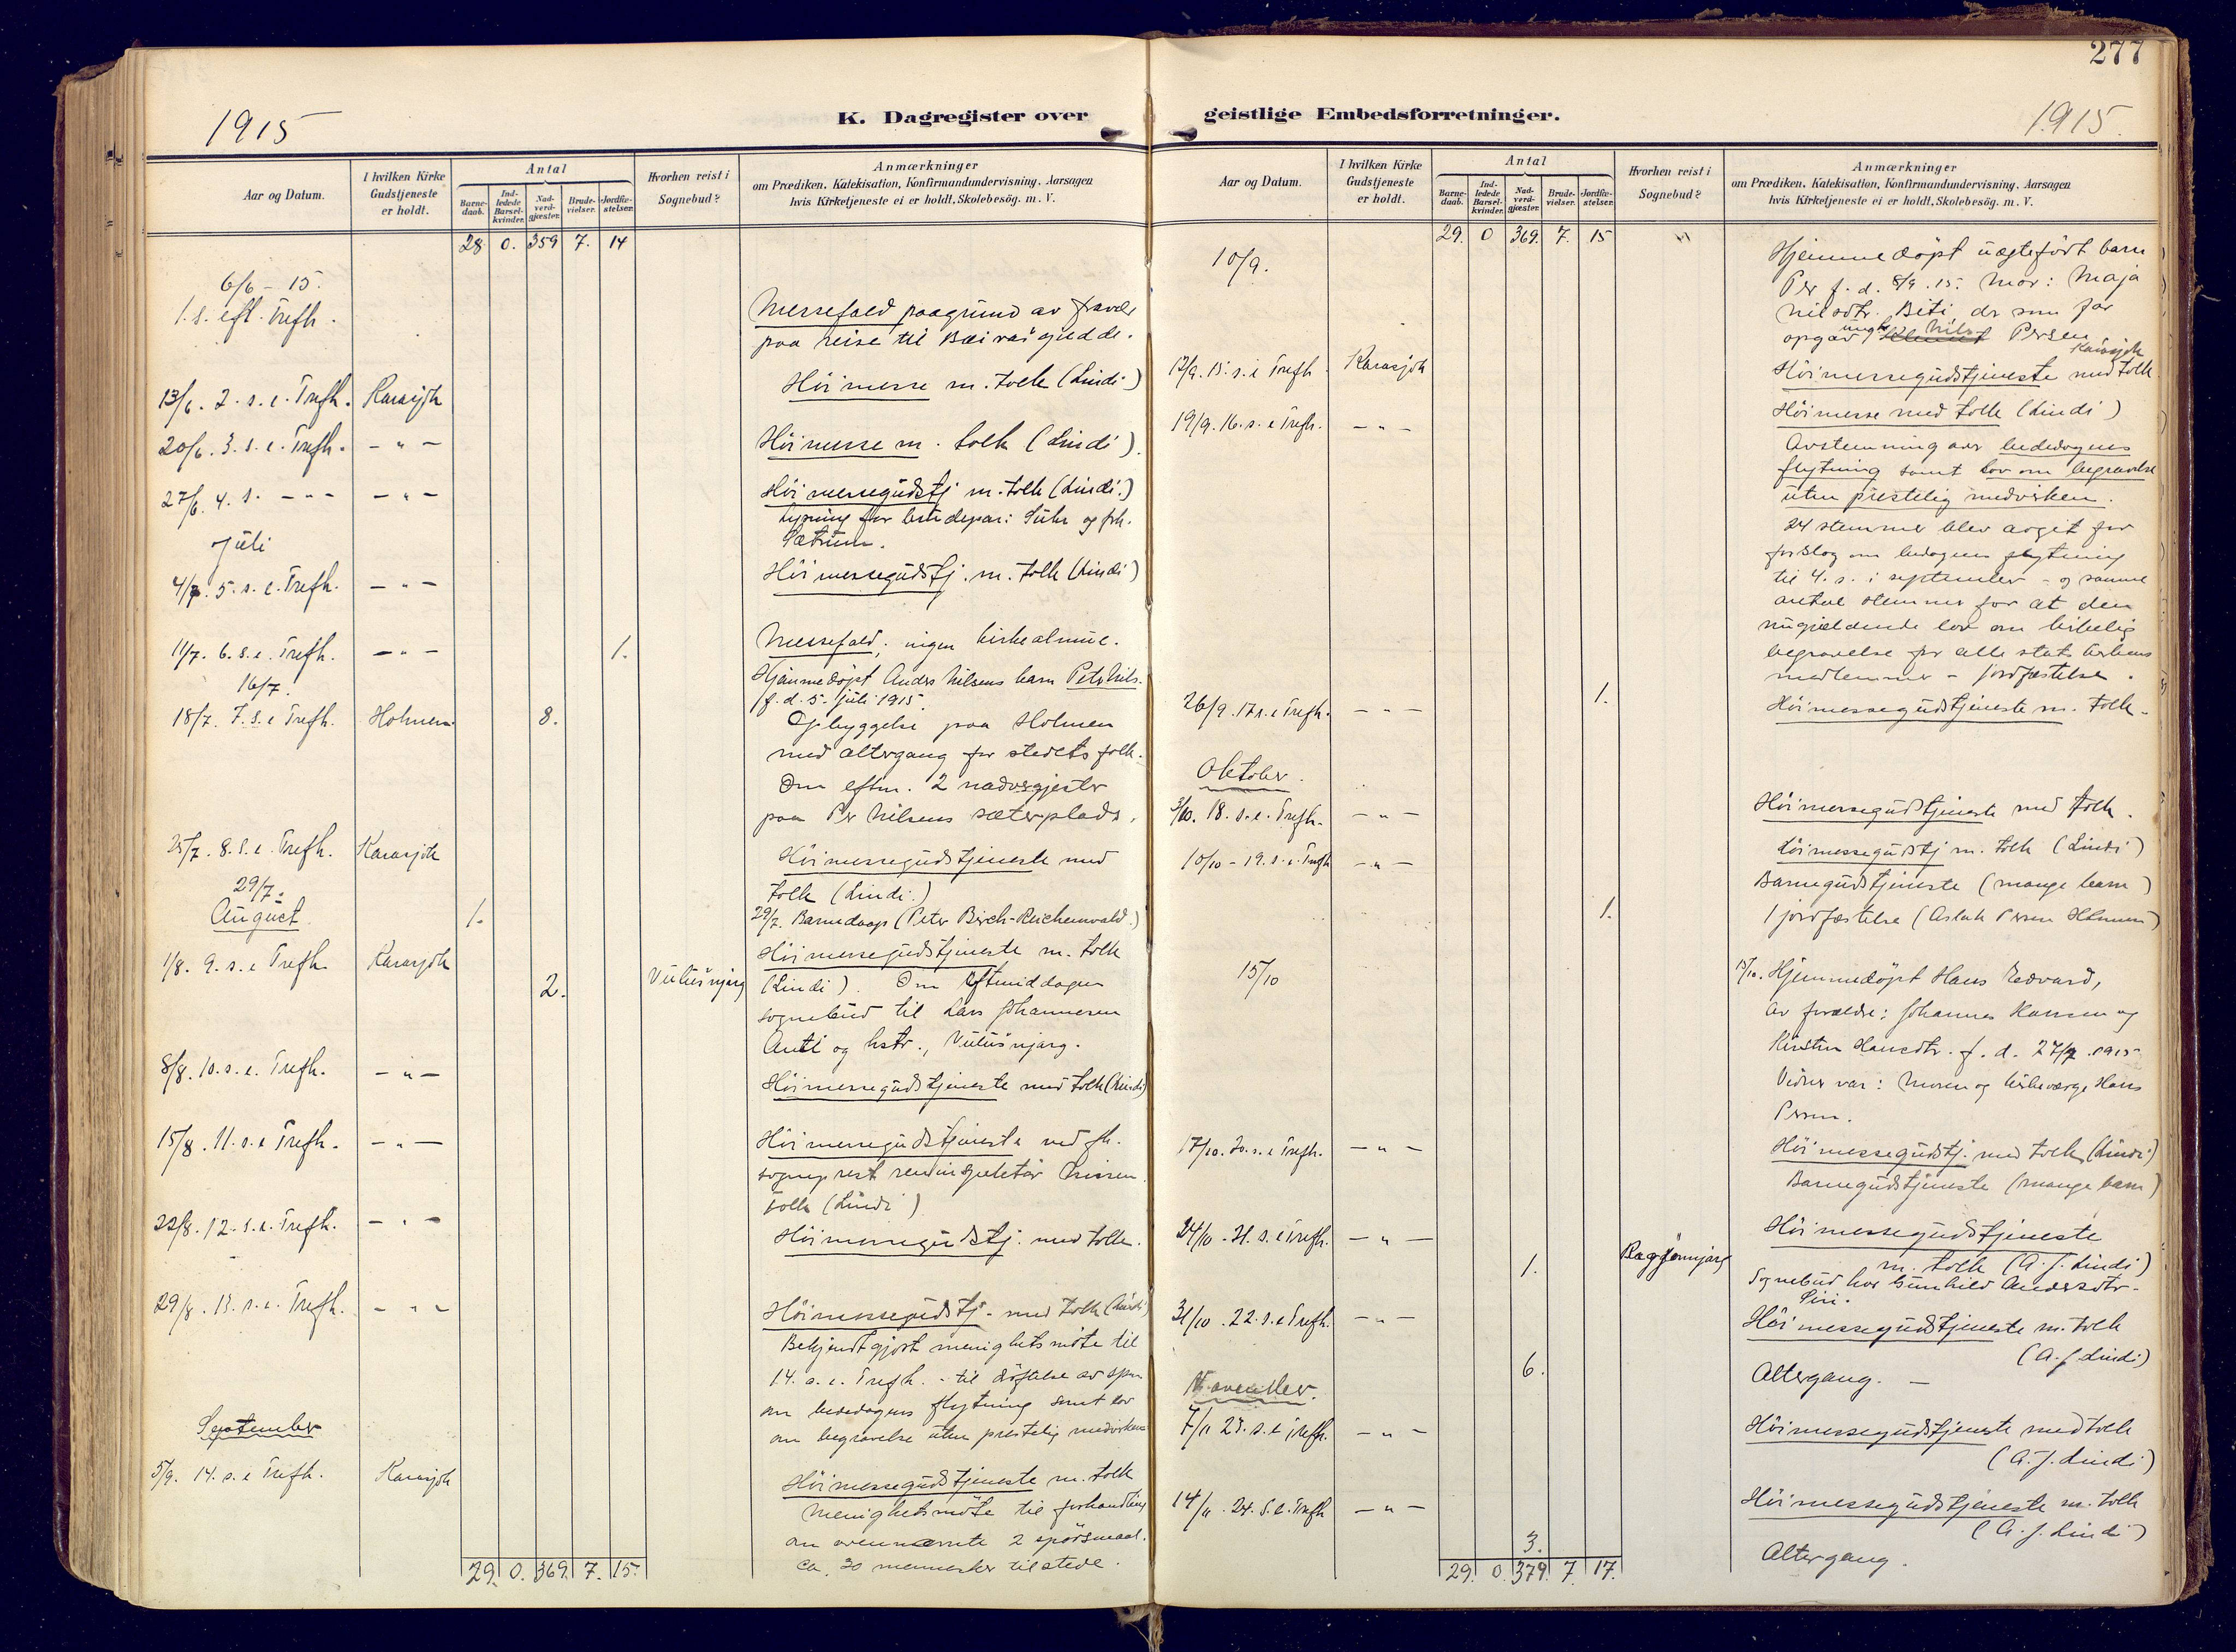 277
1915
K. Dagregister over
geistlige Embedsforretninger.
1915.
Aar og Datum.
I hvilken Kirke Gudstjeneste er holdt.
Antal
Barne-daab.
Ind-ledede Barsel-kvinder.
Nad-verd-gjæster.
Brude-vielser.
Jordfæ-stelser.
Hvorhen reist i Sognebud?
Anmærkninger
om Prædiken, Katekisation, Konfirmandundervisning, Aarsagen
hvis Kirketjeneste ei er holdt, Skolebesög. m. V.
28 0. 359 7. 14
6/6 - 15.
1. s. eft. Trefh.
Messefald paagrund av fravær
paa reise til
13/6. 2. s. e. Trefh. Karasjok
Höimesse m. tolk (Lindi)
20/6. 3. s. e. Trefh. - " -
Höimesse m. tolk (Lindi).
27/6. 4. s. - " - - " -
Höimessegudstj m. tolk (Lindi.)
Lysning for brudepar: Suhr og frk.
Sætrum.
Juli
4/7. 5. s. e. Trefh. - " -
Höimessegudstj. m. tolk (Lindi)
11/7. 6. s. e. Trefh. - " - 1.
Messefald; ingen kirkealmue.
16/7.
Hjemmedöpt Anders Nilsens barn Petr Nils.
f. d. 5. juli 1915.
18/7. 7. s. e Trefh. Holmen. 8.
Opbyggelse paa Holmen
med altergang for stedets folk.
Om eftm. 2 nadvergjester
paa Per Nilsens sæterplads.
25/7. 8. s. e. Trefh. Karasjok
Höimessegudstjeneste med
tolk (Lindi.)
29/7.
August
1.
29/7. Barnedaap (Peter Birch-Reichenwald.)
1/8. 9. s. e Trefh. Karasjok
Höimessegudstjeneste m. tolk
2. Vuťušnjarg
(Lindi). Om eftmiddagen
sognebud til Lars Johannesen
Anti og hstr., Vuťušnjarg.
8/8. 10. s. e. Trefh. - " -
Höimessegudstjeneste med tolk (Lindi)
15/8. 11. s. e Trefh. - " -
Höimessegudstjeneste ved fh.
sogneprest reninspektør Nissen.
Tolk (Lindi)
22/8. 12. s. e. Trefh. - " -
Höimessegudstj. med tolk.
29/8. 13. s. e. Trefh. - " -
Höimessegudstj. med tolk (Lindi)
Bekjendtgjort menighetsmöte til
14. s. e. Trefh. - til dröftelse av spm
om bededagens flytning samt lov
om begravelse uten prestelig medvirken
September
5/9. 14. s. e Trefh. Karasjok
Höimessegudstjeneste m. tolk
Menighetsmöte til forhandling
om ovennævnte 2 spörsmaal.
Ca. 30 mennesker tilstede.
29. 0. 369. 7. 15.
Aar og Datum.
I hvilken Kirke Gudstjeneste er holdt.
Antal
Barne-daab.
Ind-ledede Barsel-kvinder.
Nad-verd-gjæster.
Brude-vielser.
Jordfæ-stelser.
Hvorhen reist i Sognebud?
Anmærkninger
om Prædiken, Katekisation, Konfirmandundervisning, Aarsagen
hvis Kirketjeneste ei er holdt, Skolebesög. m. V.
29. 0 369. 7. 15 "
10/9.
Hjemmedöpt uægteföt barn
Per f. d. 8/9. 15. Mor: Maja
Nilsdtr. Biti, der som far
opgav ungk. Nils Persen
Karasjok
12/9. 15. s. e Trefh Karasjok
Höimessegudstjeneste med tolk
19/9. 16. s. e Trefh. - " -
Höimesse med tolk (Lindi)
Avstemning over bededagens
flytning samt lov om begravelse
uten prestelig medvirken.
24 stemmer blev avgit for
forslog om bedagens flytning
til 4. s. i september - og samme
antal stemmer for at den
nugjældende lov om kirkelig
begravelse for alle statskirkens
medlemmer - jordfæstelse.
26/9. 17. s. e Trefh. - " - 1.
Höimessegudstjeneste m. tolk.
Oktober.
3/10. 18. s. e. Trefh. - " -
Höimessegudstjeneste med tolk.
10/10 - 19. s. e. Trefh - " -
Höimessegudstj m. tolk (Lindi)
Barnegudstjeneste (mange barn)
1.
1 jordfæstelse (Aslak Persen Holmen)
15/10
15/10. Hjemmedöpt Hans Edvard,
av forældre: Johannes Hansen og
Kirsten Hansdtr. f. d. 27/9. 1915
Vidner var: Moren og kirkeværge Hans
Persen.
17/10. 20. s. e Trefh. - " -
Höimessegudstj. med tolk (Lindi)
Barnegudstjeneste (mange barn)
24/10 - 21. s. e Trefh. - " -
Höimessegudstjeneste
m. tolk (A. J. Lindi)
1.
Sognebud hos Gunhild Andersdtr.
Siri.
31/10. 22. s. e Trefh. - " -
Höimessegudstjeneste m. tolk
(A. J. Lindi)
6.
Altergang. -
November.
7/11 23. s. e Trefh. - " -
Höimessegudstjeneste med tolk
(A. J. Lindi)
14/11. 24. s. e. Trefh - " -
Höimessegudstjeneste m. tolk
(A. J. Lindi)
3.
Altergang.
29. 0. 379. 7. 17.